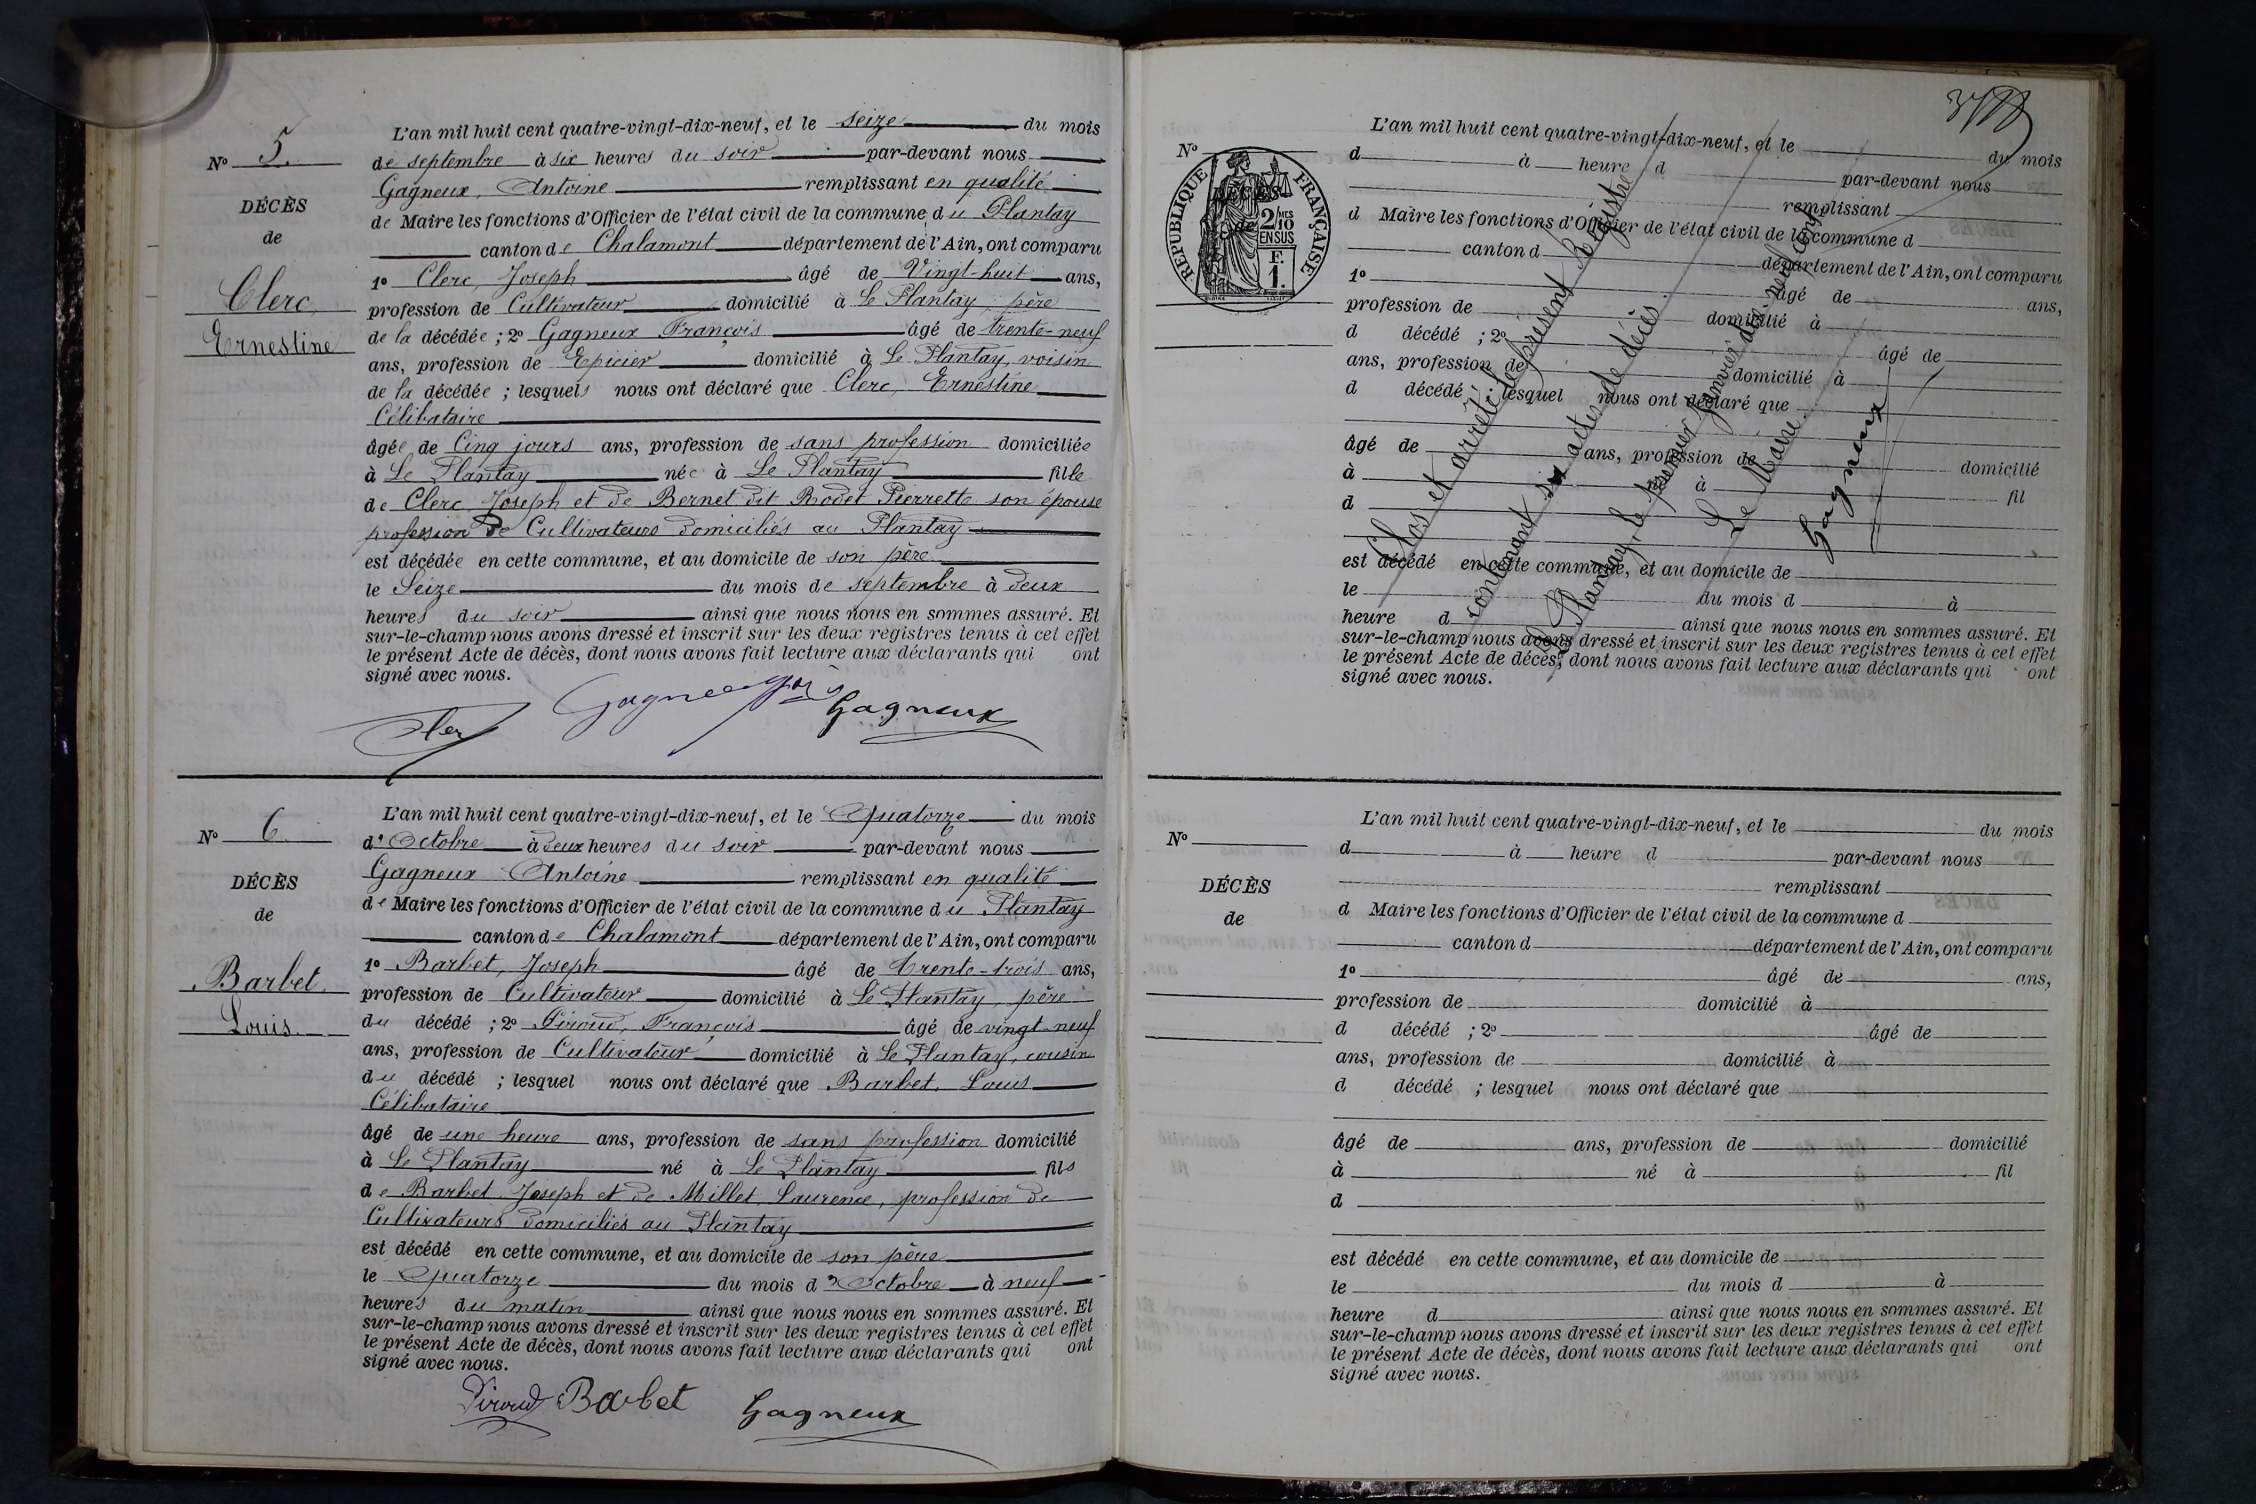 L'an mil huit cent quatre-vingt-dix-neuf, et le seize du mois
de septembre à six heures du soir par-devant nous
Gagneux, Antoine remplissant en qualité
de Maire les fonctions d'Officier de l'état civil de la commune du Plantay
canton de Chalamont département de l'Ain, ont comparu
1º Clerc, Joseph âgé de Vingt-huit ans,
profession de Cultivateur domicilié à Le Plantay, père
de la décédée ; 2º Gagneux François âgé de trente-neuf
ans, profession de Epicier domicilié à Le Plantay, voisin
de la décédée ; lesquels nous ont déclaré que Clerc, Ernestine
Célibataire
âgée de Cinq jours ans, profession de sans profession domiciliée
à Le Plantay née à Le Plantay fille
de Clerc Joseph et de Bernet dit Rodet Pierrette son épouse
profession de Cultivateurs domiciliés au Plantay
est décédée en cette commune, et au domicile de son père
le Seize du mois de septembre à deux
heures du soir ainsi que nous nous en sommes assuré. Et
sur-le-champ nous avons dressé et inscrit sur les deux registres tenus à cet effet
le présent Acte de décès, dont nous avons fait lecture aux déclarants qui ont
signé avec nous.
Nº 5.
DÉCÈS
de
Clerc,
Ernestine
Clerc Gagneux Gagneux
L'an mil huit cent quatre-vingt-dix-neuf, et le Quatorze du mois
d'Octobre à deux heures du soir par-devant nous
Gagneux Antoine remplissant en qualité
de Maire les fonctions d'Officier de l'état civil de la commune du Plantay
canton de Chalamont département de l'Ain, ont comparu
1º Barbet, Joseph âgé de trente-trois ans,
profession de Cultivateur domicilié à Le Plantay, père
du décédé ; 2º Piroud, François âgé de vingt-neuf
ans, profession de Cultivateur domicilié à Le Plantay, cousin
du décédé ; lesquel nous ont déclaré que Barbet, Louis
Célibataire
âgé de une heure ans, profession de sans profession domicilié
à Le Plantay né à Le Plantay fils
de Barbet Joseph et de Millet Laurence, profession de
Cultivateurs domiciliés au Plantay
est décédé en cette commune, et au domicile de son père
le Quatorze du mois d'Octobre à neuf
heures du matin ainsi que nous nous en sommes assuré. Et
sur-le-champ nous avons dressé et inscrit sur les deux registres tenus à cet effet
le présent Acte de décès, dont nous avons fait lecture aux déclarants qui ont
signé avec nous.
Nº 6
DÉCÈS
de
Barbet,
Louis.
Piroud Barbet Gagneux
3
Nº
RÉPUBLIQUE FRANÇAISE
DÉCÈS
de
2/10MES
EN SUS
F.
1.
L'an mil huit cent quatre-vingt-dix-neuf, et le du mois
d à heure d par-devant nous
remplissant
d Maire les fonctions d'Officier de l'état civil de la commune d
canton d département de l'Ain, ont comparu
1º âgé de ans,
profession de domicilié à
d décédé ; 2º âgé de
ans, profession de domicilié à
d décédé ; lesquel nous ont déclaré que
âgé de ans, profession de domicilié
à à fil
d
est décédé en cette commune, et au domicile de
le du mois d à
heure d ainsi que nous nous en sommes assuré. Et
sur-le-champ nous avons dressé et inscrit sur les deux registres tenus à cet effet
le présent Acte de décès, dont nous avons fait lecture aux déclarants qui ont
signé avec nous.
Clos et arrêté le présent Registre
contenant six actes de décès
Le Plantay, le premier Janvier dix neuf cent
Le Maire
Gagneux
Nº
DÉCÈS
de
L'an mil huit cent quatre-vingt-dix-neuf, et le du mois
d à heure d par-devant nous
remplissant
d Maire les fonctions d'Officier de l'état civil de la commune d
canton d département de l'Ain, ont comparu
1º âgé de ans,
profession de domicilié à
d décédé ; 2º âgé de
ans, profession de domicilié à
d décédé ; lesquel nous ont déclaré que
âgé de ans, profession de domicilié
à né à fil
d
est décédé en cette commune, et au domicile de
le du mois d à
heure d ainsi que nous nous en sommes assuré. Et
sur-le-champ nous avons dressé et inscrit sur les deux registres tenus à cet effet
le présent Acte de décès, dont nous avons fait lecture aux déclarants qui ont
signé avec nous.